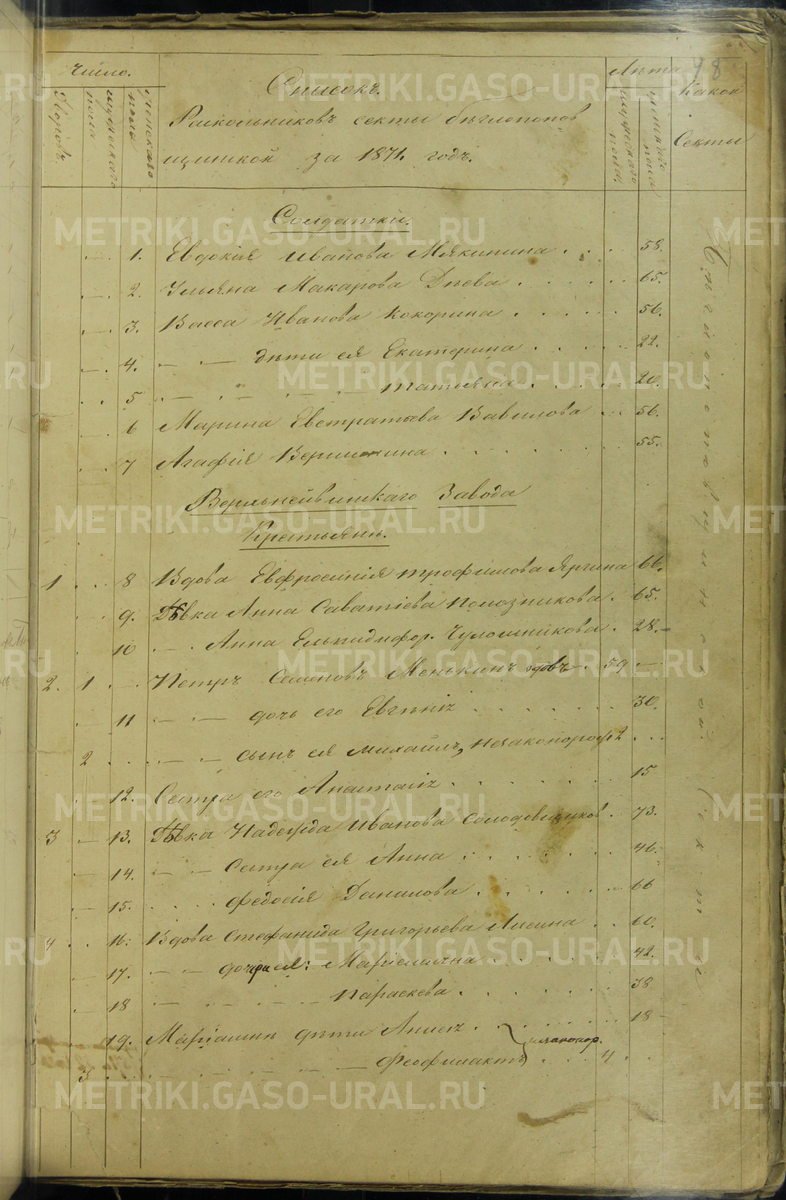 98
Число.
Дворовъ.
мужскаго пола
женскаго пола
Списокъ.
Раскольниковъ секты бѣглопопов
щинской за 1871. годъ.
Лѣта
мужскаго пола.
женска пола
Какой
Секты
Солдатки.
1. Евдокія Иванова Мякинина . . . 58.
2. Ульяна Макарова Днева . . . 65.
3. Васса Иванова Кокорина . . . 56.
4. — — дѣти ея Екатерина . . . 22.
5 Татіяна . . . 20.
6 Марина Евстратьева Вавилова . . . 56.
7 Агафія Вершинина . . . 55.
Верхнейвинскаго Завода
Крестьянъ.
1 . . 8 Вдова Евфросинія Трофимова Яргина 66.
9. Дѣвка Анна Саватіева Полозникова . 65.
10 — . Анна Елпидифор. Чумошникова . 28.
2. 1 — Петръ Семеновъ Менькинъ вдовъ . 59 —
11 — — дочь его Евгенія . . . 30.
2 . . — — сынъ ея Михаилъ, незаконорож 12 . . .
12. Сестра его Анастасія . . . 15
3 — 13. Дѣвка Надежда Иванова Солодовников . 73.
14. — — Сестра ея Анна . . . 46.
15. . . . . Федосія Данилова . . . 66
4 . . 16. Вдова Стефанида Григорьева Лисина . . 60.
17. — — дочери ея: Маріамна . . . 42.
18 — Параскева . . . 38
19. Маріамны дѣти Анисья . . . 18
3 — Феофилактъ незаконор. . . . 4 .
Бѣглопоповщинской секты
METRIKI.GASO-URAL.RU